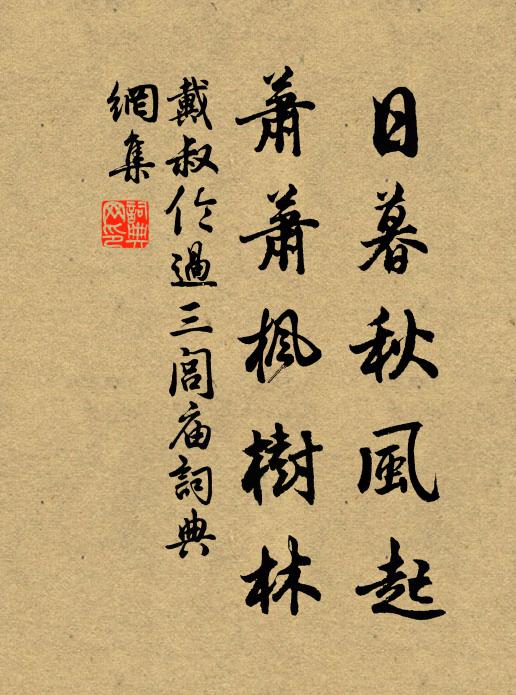 日暮秋風起
蕭蕭楓樹林
戴叔伦過三閭庙詞典
網集
詞典
网印